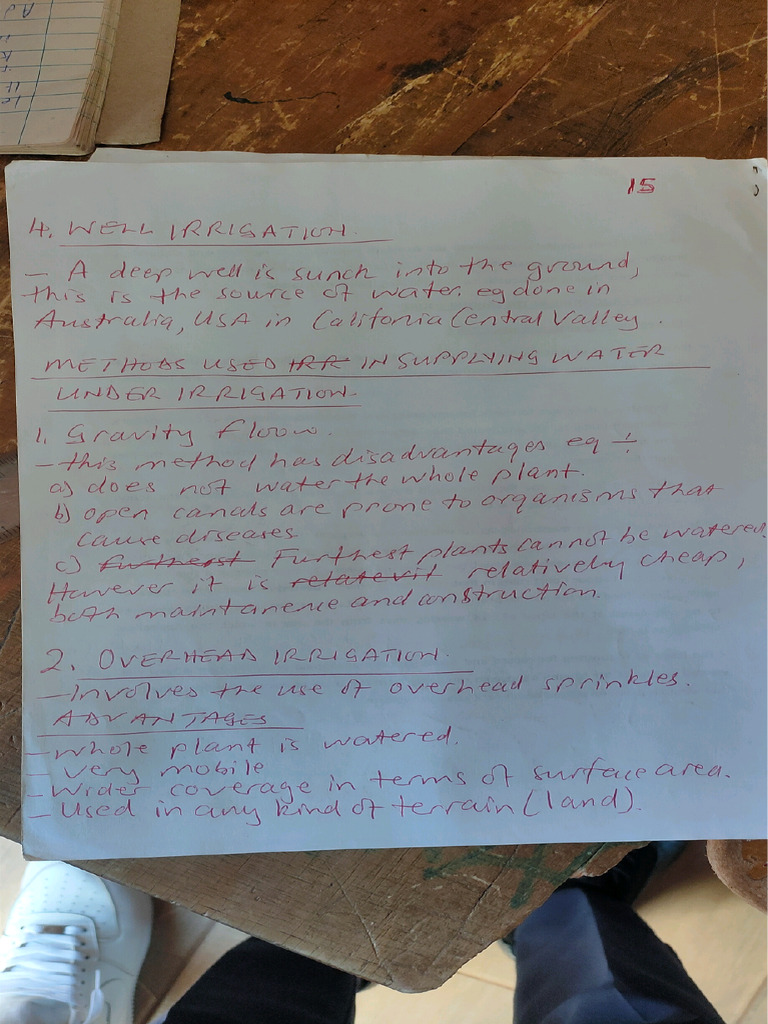 15
4. WELL IRRIGATION.
- A deep well is sunch into the ground,
this is the source of water. eg done in
Australia, USA in California Central Valley.
METHODS USED IRR IN SUPPLYING WATER
UNDER IRRIGATION.
1. Gravity floow.
- this method has disadvantages eg ÷
a) does not water the whole plant.
b) open canals are prone to organisms that
cause diseases
c) furtherst Furthest plants cannot be watered.
However it is relatevit relatively cheap,
both maintanence and construction.
2. OVERHEAD IRRIGATION.
- Involves the use of overhead sprinkles.
ADVANTAGES
- whole plant is watered.
- very mobile
- wider coverage in terms of surface area.
- Used in any kind of terrain (land).